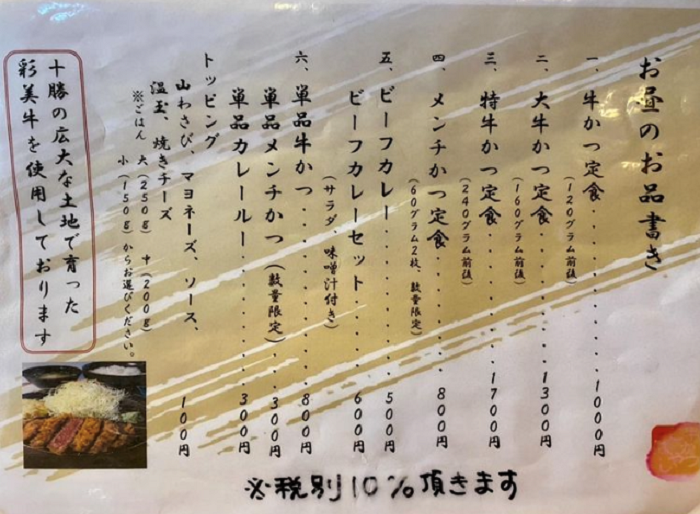 お昼のお品書き
一、牛かつ定食..........1000円
(120グラム前後)
二、大牛かつ定食..........1300円
(160グラム前後)
三、特牛かつ定食..........1700円
(240グラム前後)
四、メンチかつ定食..........800円
(60グラム2枚、数量限定)
五、ビーフカレー..........500円
ビーフカレーセット..........600円
(サラダ、味噌汁付き)
六、単品牛かつ..........800円
単品メンチかつ(数量限定)....300円
単品カレールー..........300円
トッピング
山わさび、マヨネーズ、ソース、
温玉、焼きチーズ 100円
※ごはん 大(250g) 中(200g)
小(150g)からお選びください。
十勝の広大な土地で育った
彩美牛を使用しております
※税別10%頂きます